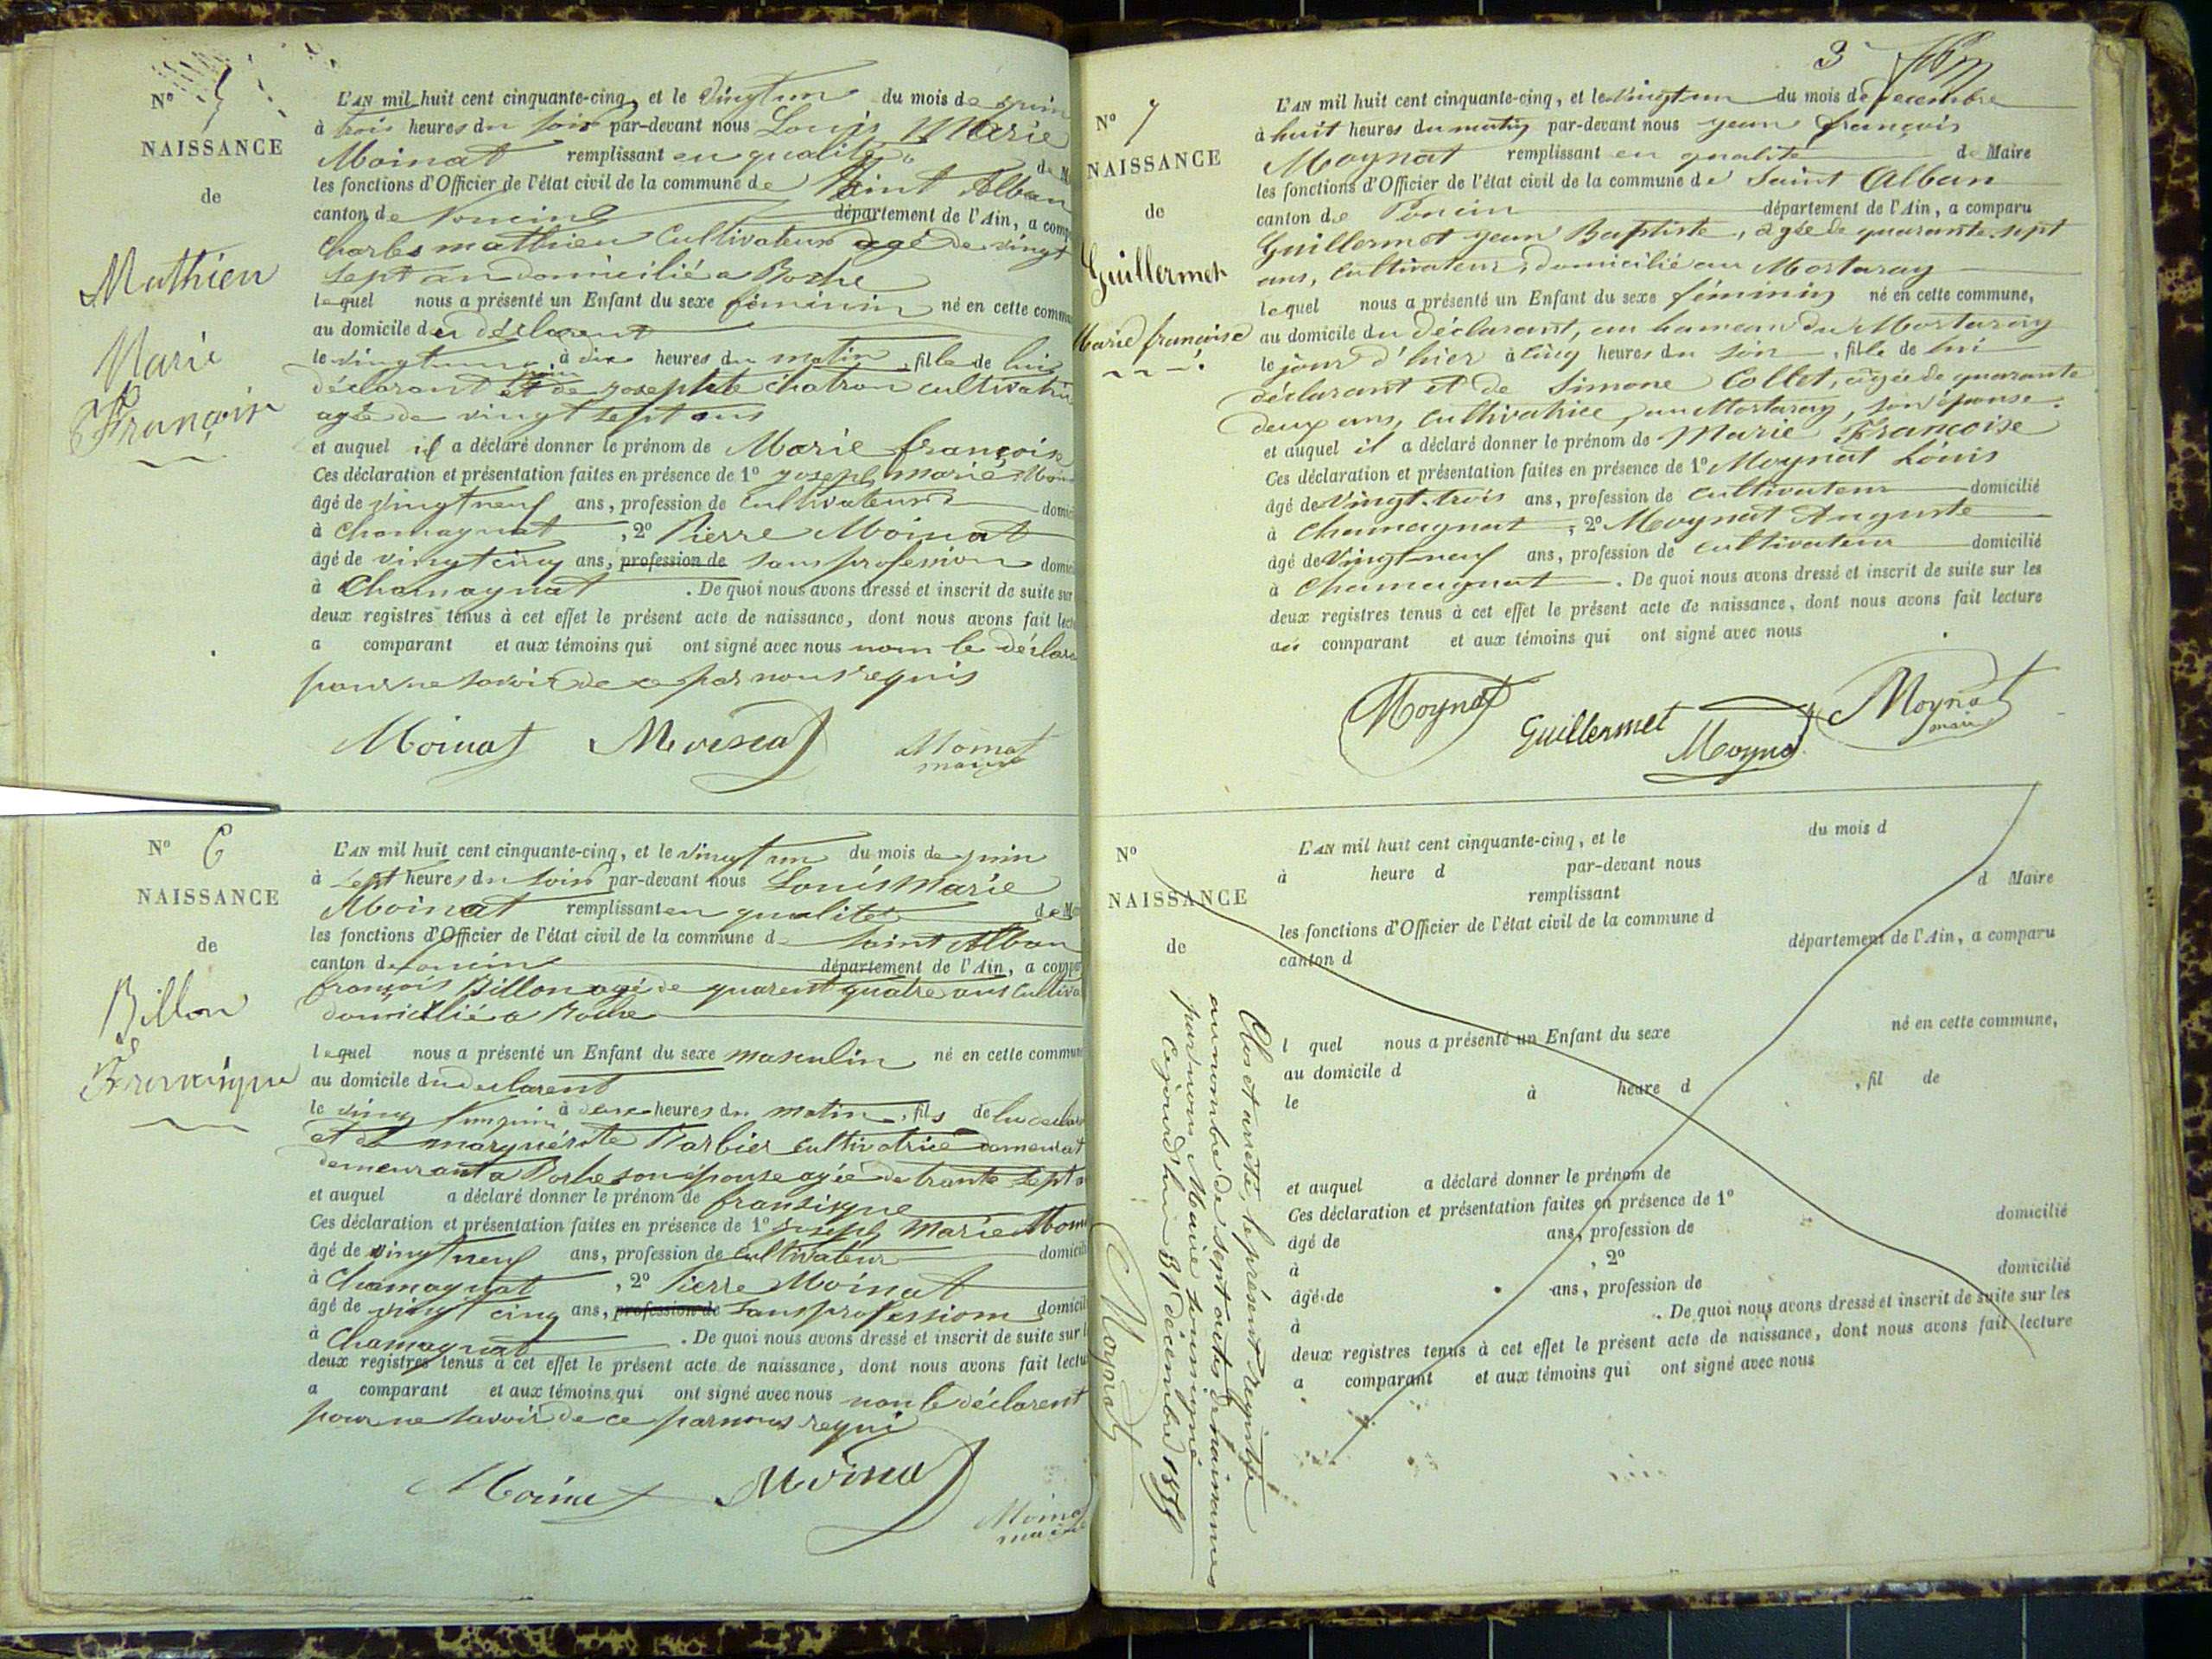 N° 5
NAISSANCE
de
Mathieu
Marie
Françoise
L'AN mil huit cent cinquante-cinq, et le vingt un du mois de juin
à trois heures du soir par-devant nous Louis Marie
Moinat remplissant en qualité de M
les fonctions d'Officier de l'état civil de la commune de Saint Alban
canton de Poncin département de l'Ain, a comp
Charles mathieu Cultivateur agé de vingt
sept an domicilié a Roche
lequel nous a présenté un Enfant du sexe féminin né en cette comm
au domicile du déclarent
le vingt un à dix heures du matin, fille de lui
déclarant et de josephte chatron cultivatri
agée de vingt sept ans
et auquel il a déclaré donner le prénom de Marie françoise
Ces déclaration et présentation faites en présence de 1° joseph marie Moin
âgé de vingt neuf ans, profession de Cultivateur domici
à Chamagnat, 2° Pierre Moinat
âgé de vingt cinq ans, profession de sans profession domici
à Chamagnat. De quoi nous avons dressé et inscrit de suite sur
deux registres tenus à cet effet le présent acte de naissance, dont nous avons fait lectu
a comparant et aux témoins qui ont signé avec nous nom le déclare
pour ne savoir de ce par nous requis
Moinat Moinat Moinat
maire
N° 6
NAISSANCE
de
Billon
Fransique
L'AN mil huit cent cinquante-cinq, et le vingt un du mois de juin
à sept heures du soir par-devant nous Louis Marie
Moinat remplissant en qualité de M
les fonctions d'Officier de l'état civil de la commune d saint Alban
canton de Poncin département de l'Ain, a compa
françois Billon agé de quarent quatre ans Cultiva
domicilié a Roche
lequel nous a présenté un Enfant du sexe masculin né en cette commun
au domicile du declarent
le vingt un juin à deux heures du matin, fils de lui declar
et de marguérite Barbier cultivatrice demeurat
demeurant a Roche son épouse agée de trante sept a
et auquel a déclaré donner le prénom de fransisque
Ces déclaration et présentation faites en présence de 1° joseph Marie Moin
âgé de vingt neuf ans, profession de Cultivateur domicili
à Chamagnat, 2° Pierre Moinat
âgé de vingt cinq ans, profession de sans profession domicil
à Chamagnat. De quoi nous avons dressé et inscrit de suite sur l
deux registres tenus à cet effet le présent acte de naissance, dont nous avons fait lectu
a comparant et aux témoins qui ont signé avec nous non le déclarent
pour ne savoir de ce par nous requi
Moinat Moinat Moinat
maire
3
N° 7
NAISSANCE
de
Guillermet
Marie françoise
L'AN mil huit cent cinquante-cinq, et le vingt un du mois de Décembre
à huit heures du matin par-devant nous jean françois
Moynat remplissant en qualité de Maire
les fonctions d'Officier de l'état civil de la commune de Saint Alban
canton de Poncin département de l'Ain, a comparu
Guillermet jean Baptiste, agée de quarante sept
ans, Cultivateur, domicilié au Mortaray
lequel nous a présenté un Enfant du sexe féminin né en cette commune,
au domicile du déclarant, au hameau du Mortaray
le jour d'hier à cinq heures du soir, fille de lui
déclarant et de Simone Collet, agée de quarante
deux ans, Cultivatrice, au Mortaray, son épouse.
et auquel il a déclaré donner le prénom de Marie Françoise
Ces déclaration et présentation faites en présence de 1° Moynat Louis
âgé de vingt-trois ans, profession de Cultivateur domicilié
à Chamagnat, 2° Moynat Auguste
âgé de vingt neuf ans, profession de Cultivateur domicilié
à Chamagnat. De quoi nous avons dressé et inscrit de suite sur les
deux registres tenus à cet effet le présent acte de naissance, dont nous avons fait lecture
au comparant et aux témoins qui ont signé avec nous
Moynat Guillermet Moynat Moynat
maire
N°
NAISSANCE
de
L'AN mil huit cent cinquante-cinq, et le du mois d
à heure d par-devant nous
remplissant d Maire
les fonctions d'Officier de l'état civil de la commune d
canton d département de l'Ain, a comparu
l quel nous a présenté un Enfant du sexe né en cette commune,
au domicile d
le à heure d , fil de
et auquel a déclaré donner le prénom de
Ces déclaration et présentation faites en présence de 1°
âgé de ans, profession de domicilié
à , 2°
âgé de ans, profession de domicilié
à . De quoi nous avons dressé et inscrit de suite sur les
deux registres tenus à cet effet le présent acte de naissance, dont nous avons fait lecture
a comparant et aux témoins qui ont signé avec nous
Clos et arrêté, le présent Registre
au nombre de sept actes de naissances
par nous Maire soussigné
Cejourd'hui 31 décembre 1855
Moynat